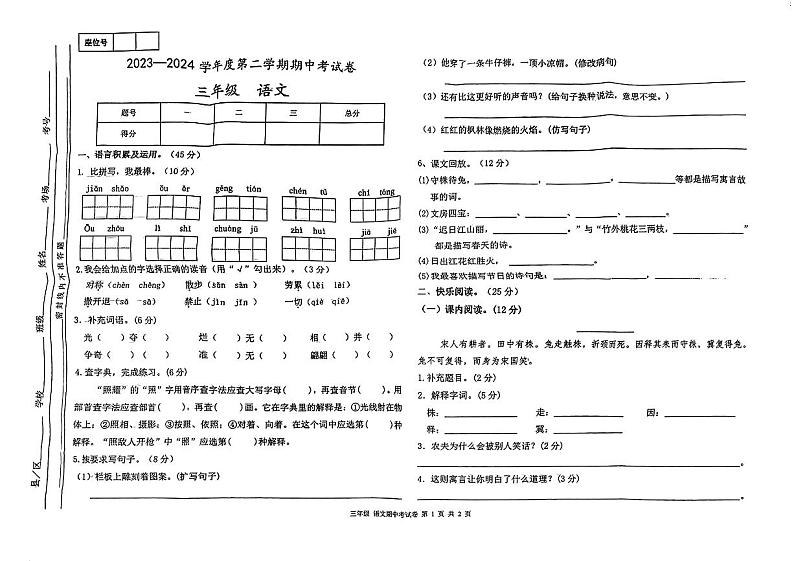 座位号
2023—2024学年度第二学期期中考试卷
三年级 语文
题号 一 二 三 总分
得分
一、语言积累及运用。(45分)
1. 比拼写，我最棒。(10分)
jiān shāo ōu ěr gēng tián chén tǔ chí táng
Ōu zhōu lì shǐ chuàng jǔ zhì huì jiā jié
2.我会给加点的字选择正确的读音(用“√”勾出来)。(3分)
对称(chèn chèng) 散步(sǎn sàn) 劳累(lěi lèi)
撒开退(sā sǎ) 禁止(jìn jīn) 一切(qiè qiē)
3. 补充词语。(6分)
光( )夺( ) 烂( )无( ) 相( )并( )
争奇( )( ) 准( )无( ) 翩翩( )( )
4.查字典，完成练习。(6分)
“照耀”的“照”字用音序查字法应查大写字母( )，再查音节( )。用
部首查字法应查部首( )，再查( )画。它在字典里的解释是：①光线射在物
体上；②照相、摄影；③按照、依照；④对着、向着。在这个词中应选第( )种
解释。“照敌人开枪”中“照”应选第( )种解释。
5.按要求写句子。(8分)
(1)栏板上雕刻着图案。(扩写句子)
(2)他穿了一条牛仔裤，一顶小凉帽。(修改病句)
(3)还有比这更好听的声音吗？(给句子换种说法，意思不变。)
(4)红红的枫林像燃烧的火焰。(仿写句子)
6、课文回放。(12分)
(1)守株待兔，____，____，____等都是描写寓言故
事的词。
(2)文房四宝：____、____、____、____。
(3)“迟日江山丽，____。”与“竹外桃花三两枝，____”
都是描写春天的诗。
(4)日出江花红胜火，____。
(5)我最喜欢描写节日的诗句是：____，____。
二、快乐阅读。(25分)
(一)课内阅读。(12分)
宋人有耕者。田中有株。兔走触株，折颈而死。因释其耒而守株，冀复得兔。
兔不可复得，而身为宋国笑。
1.补充题目。(2分)
2. 解释字词。(5分)
株：____ 走：____ 因：____
释：____ 冀：____
3. 农夫为什么会被别人笑话？(2分)
。
4. 这则寓言让你明白了什么道理？(3分)
。
三年级 语文期中考试卷 第 1 页 共 2 页
县/区 学校 班级 姓名 考场 考号
密封线内不准答题